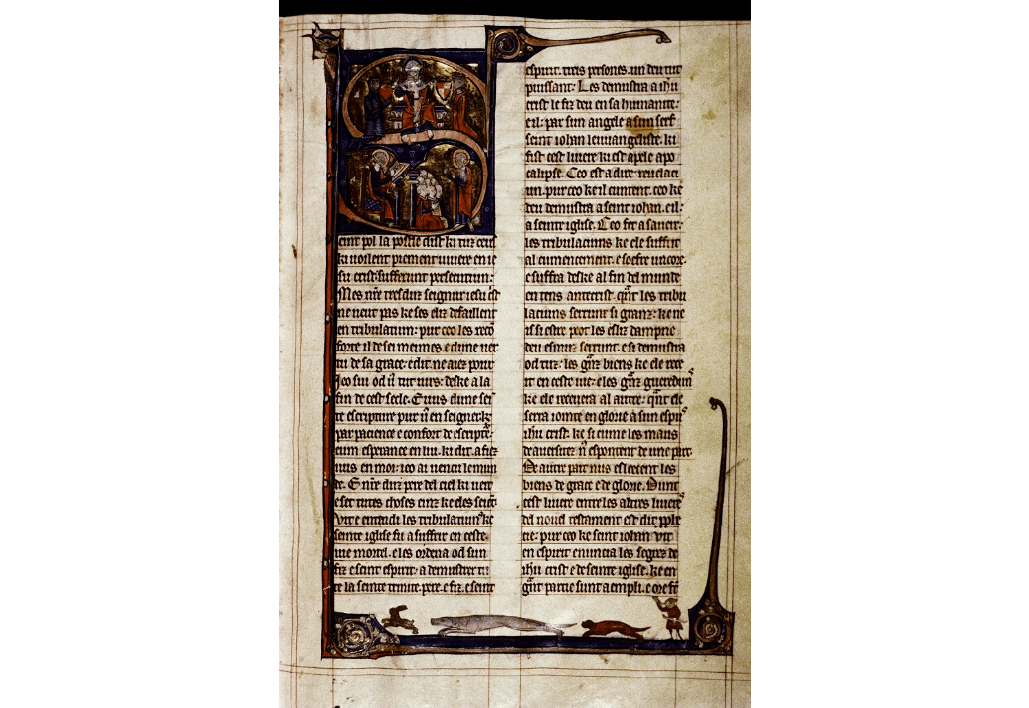 eint pol la postle dist ki tuz ceus
ki uoilent piement uiuere en ie
su crist sufferunt persecutiun:
Mes nr̄e tresduz seignur iesu c̄st
ne ueut pas ke ses eliz defaillent
en tribulatiun: pur ceo les reco̅
forte il de sei meimes e dune uer
tu de sa grace. e dit. ne aiez pour
Jeo sui od u̅ tut iurs: deske a la
fin de cest secle. E uus dune sei̅
te escripture pur u̅ enseigner. ke
par pacience e confort de escriptᵉ
eum esperance en lui. ki dit. a fiez
uuus en moi: ieo ai uencu le mun
de. E nr̄e duz pere del ciel ki ueit
e set tutes choses einz ke eles seie̅t
Vit e entendi les tribulatiuns ke
seinte iglise fu a suffrir en ceste
uie mortel. e les ordena od sun
fiz e seint espirit: a demustrer tu
te la seinte trinite. pere. e fiz. e seint
espirit. treis persones. un deu tut
puissant: Les demustra a ihu
crist le fiz deu en sa humanite:
e il: par sun angele a sun serf
seint iohan le uuangeliste. ki
fist cest liuere ki est apele apo
calipse. Ceo est a dire reuelaci
un. pur ceo ke il cuntent. ceo ke
deu demustra a seint iohan. e il:
a seinte iglise. Ceo fet a saueir:
les tribulaciuns ke ele suffrit
al cumencement. e soefre uncore.
e suffra deske al fin del munde
en tens antecrist. qn̄t les tribu
laciuns serrunt si granz: ke ne
is si estre poet les esliz dampne
deu esmuz serrunt. e si demustra
od tuz: les gn̄z biens ke ele rece
it en ceste uie: e les gn̄z gueredun̅
ke ele receuera al autre: qn̄t ele
serra iointe en glorie a sun espu᷒
ihu crist. ke si cume les maus
de auersitez n̅ espoentent de une part.
De autre part nus esleecent les
biens de grace e de glorie. Dunt
cest liuere entre les altres liuere᷒
del nouel testament est dit pphe
cie: pur ceo ke seint iohan vit
en espirit enuncia les segrez de
ihu crist e de seinte iglise. ke en
gn̄t partie sunt aempli. e ore sr̄t